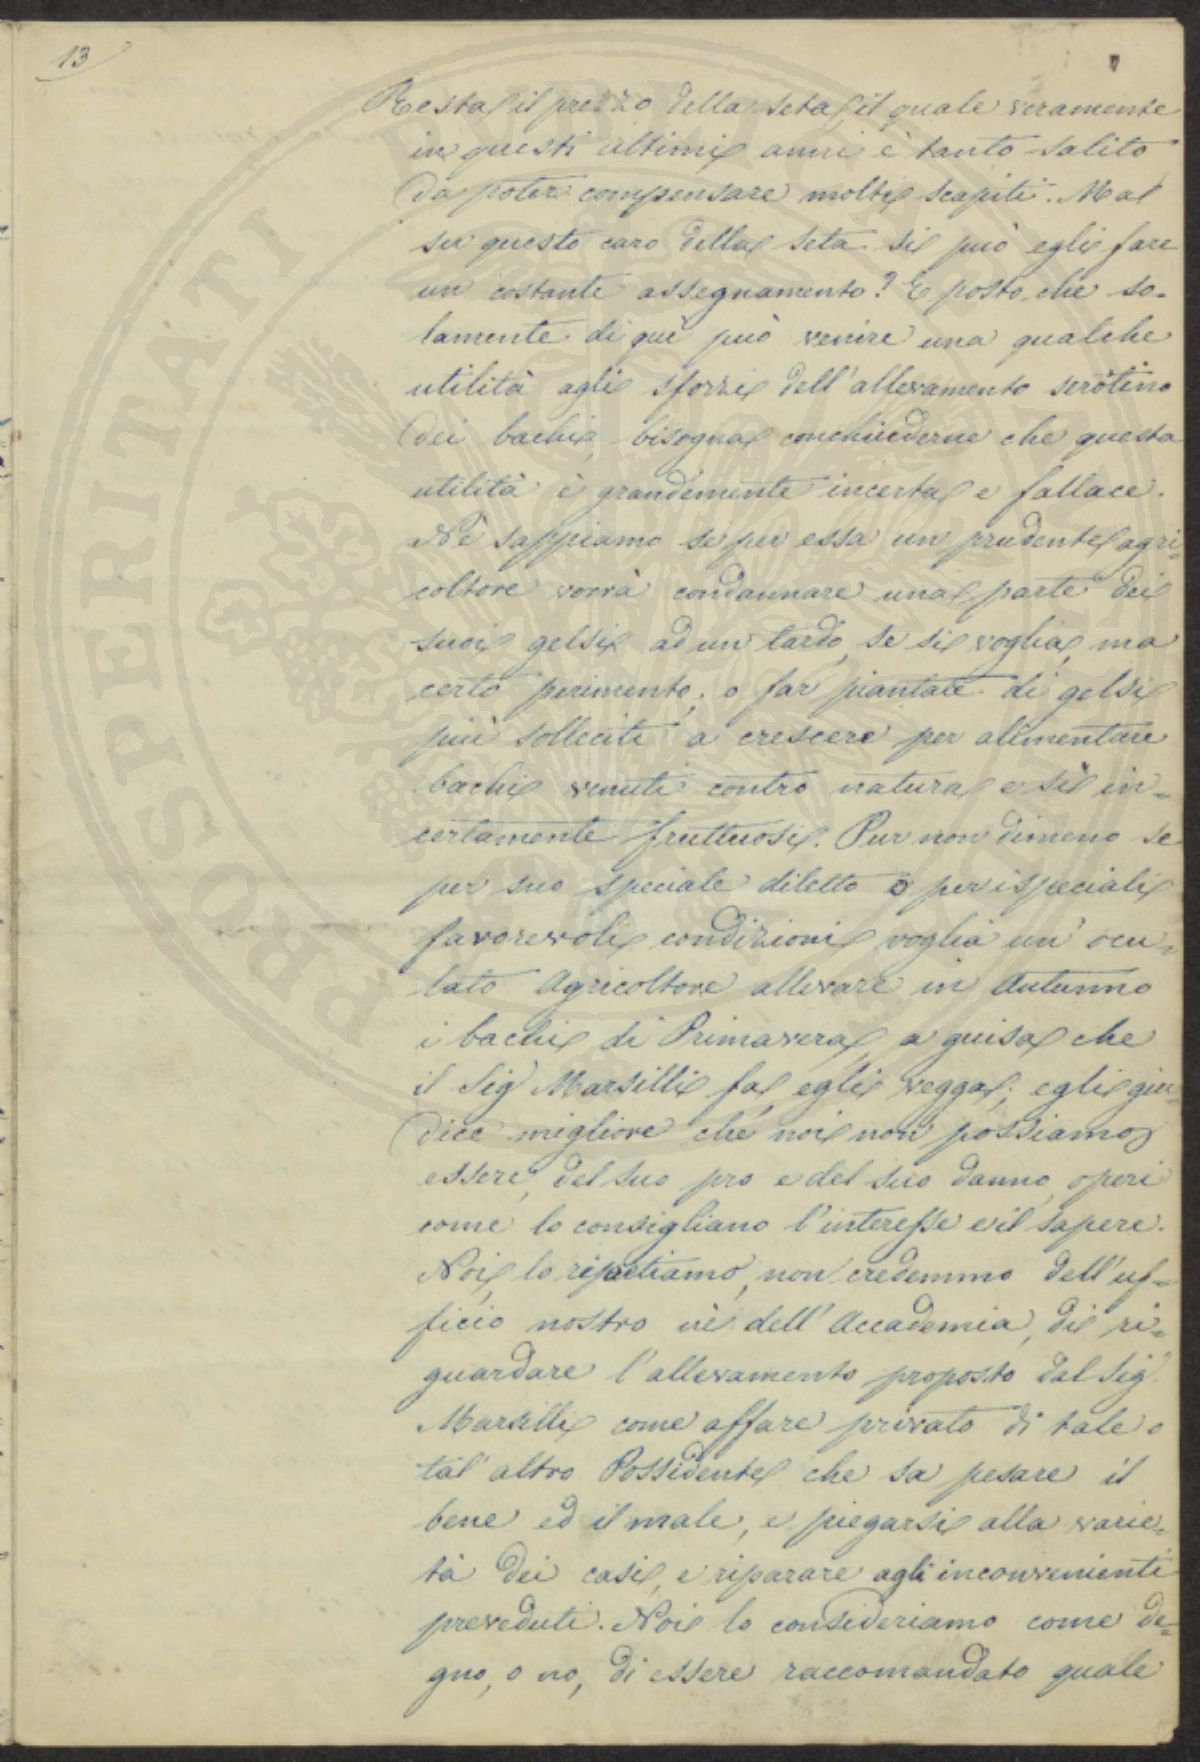 13
Resta il prezzo della seta, il quale veramente
in questi ultimi anni è tanto salito
da poter compensare molti scapiti. Ma
su questo caro della seta si può egli fare
un costante assegnamento? E posto che so-
lamente di quì può venire una qualche
utilità agli sforzi dell'allevamento serotino
dei bachi, bisogna conchiuderne che questa
utilità è grandemente incerta e fallace.
Nè sappiamo se per essa un prudente agri-
coltore vorrà condannare una parte dei
suoi gelsi ad un tardo, se si voglia, ma
certo perimento; o far piantate di gelsi
più solleciti a crescere per alimentare
bachi venuti contro natura e sì in-
certamente fruttuosi. Pur non dimeno se
per suo speciale diletto o per ispeciali
favorevoli condizioni voglia un' ocu-
lato Agricoltore allevare in Autunno
i bachi di Primavera, a guisa che
il Sig. Marsilli fa, egli vegga; egli giu-
dice migliore che noi non possiamo
essere, del suo pro e del suo danno, operi
come lo consigliano l'interesse e il sapere.
Noi, lo ripetiamo, non credemmo dell'uf-
ficio nostro nè dell'Accademia, di ri-
guardare l'allevamento proposto dal Sig.
Marsilli come affare privato di tale o
tal'altro Possidente che sa pesare il
bene ed il male, e piegarsi alla varie-
tà dei casi, e riparare agli inconvenienti
preveduti. Noi lo consideriamo come de-
gno, o no, di essere raccomandato quale
PROSPERITATI PUBLICAE